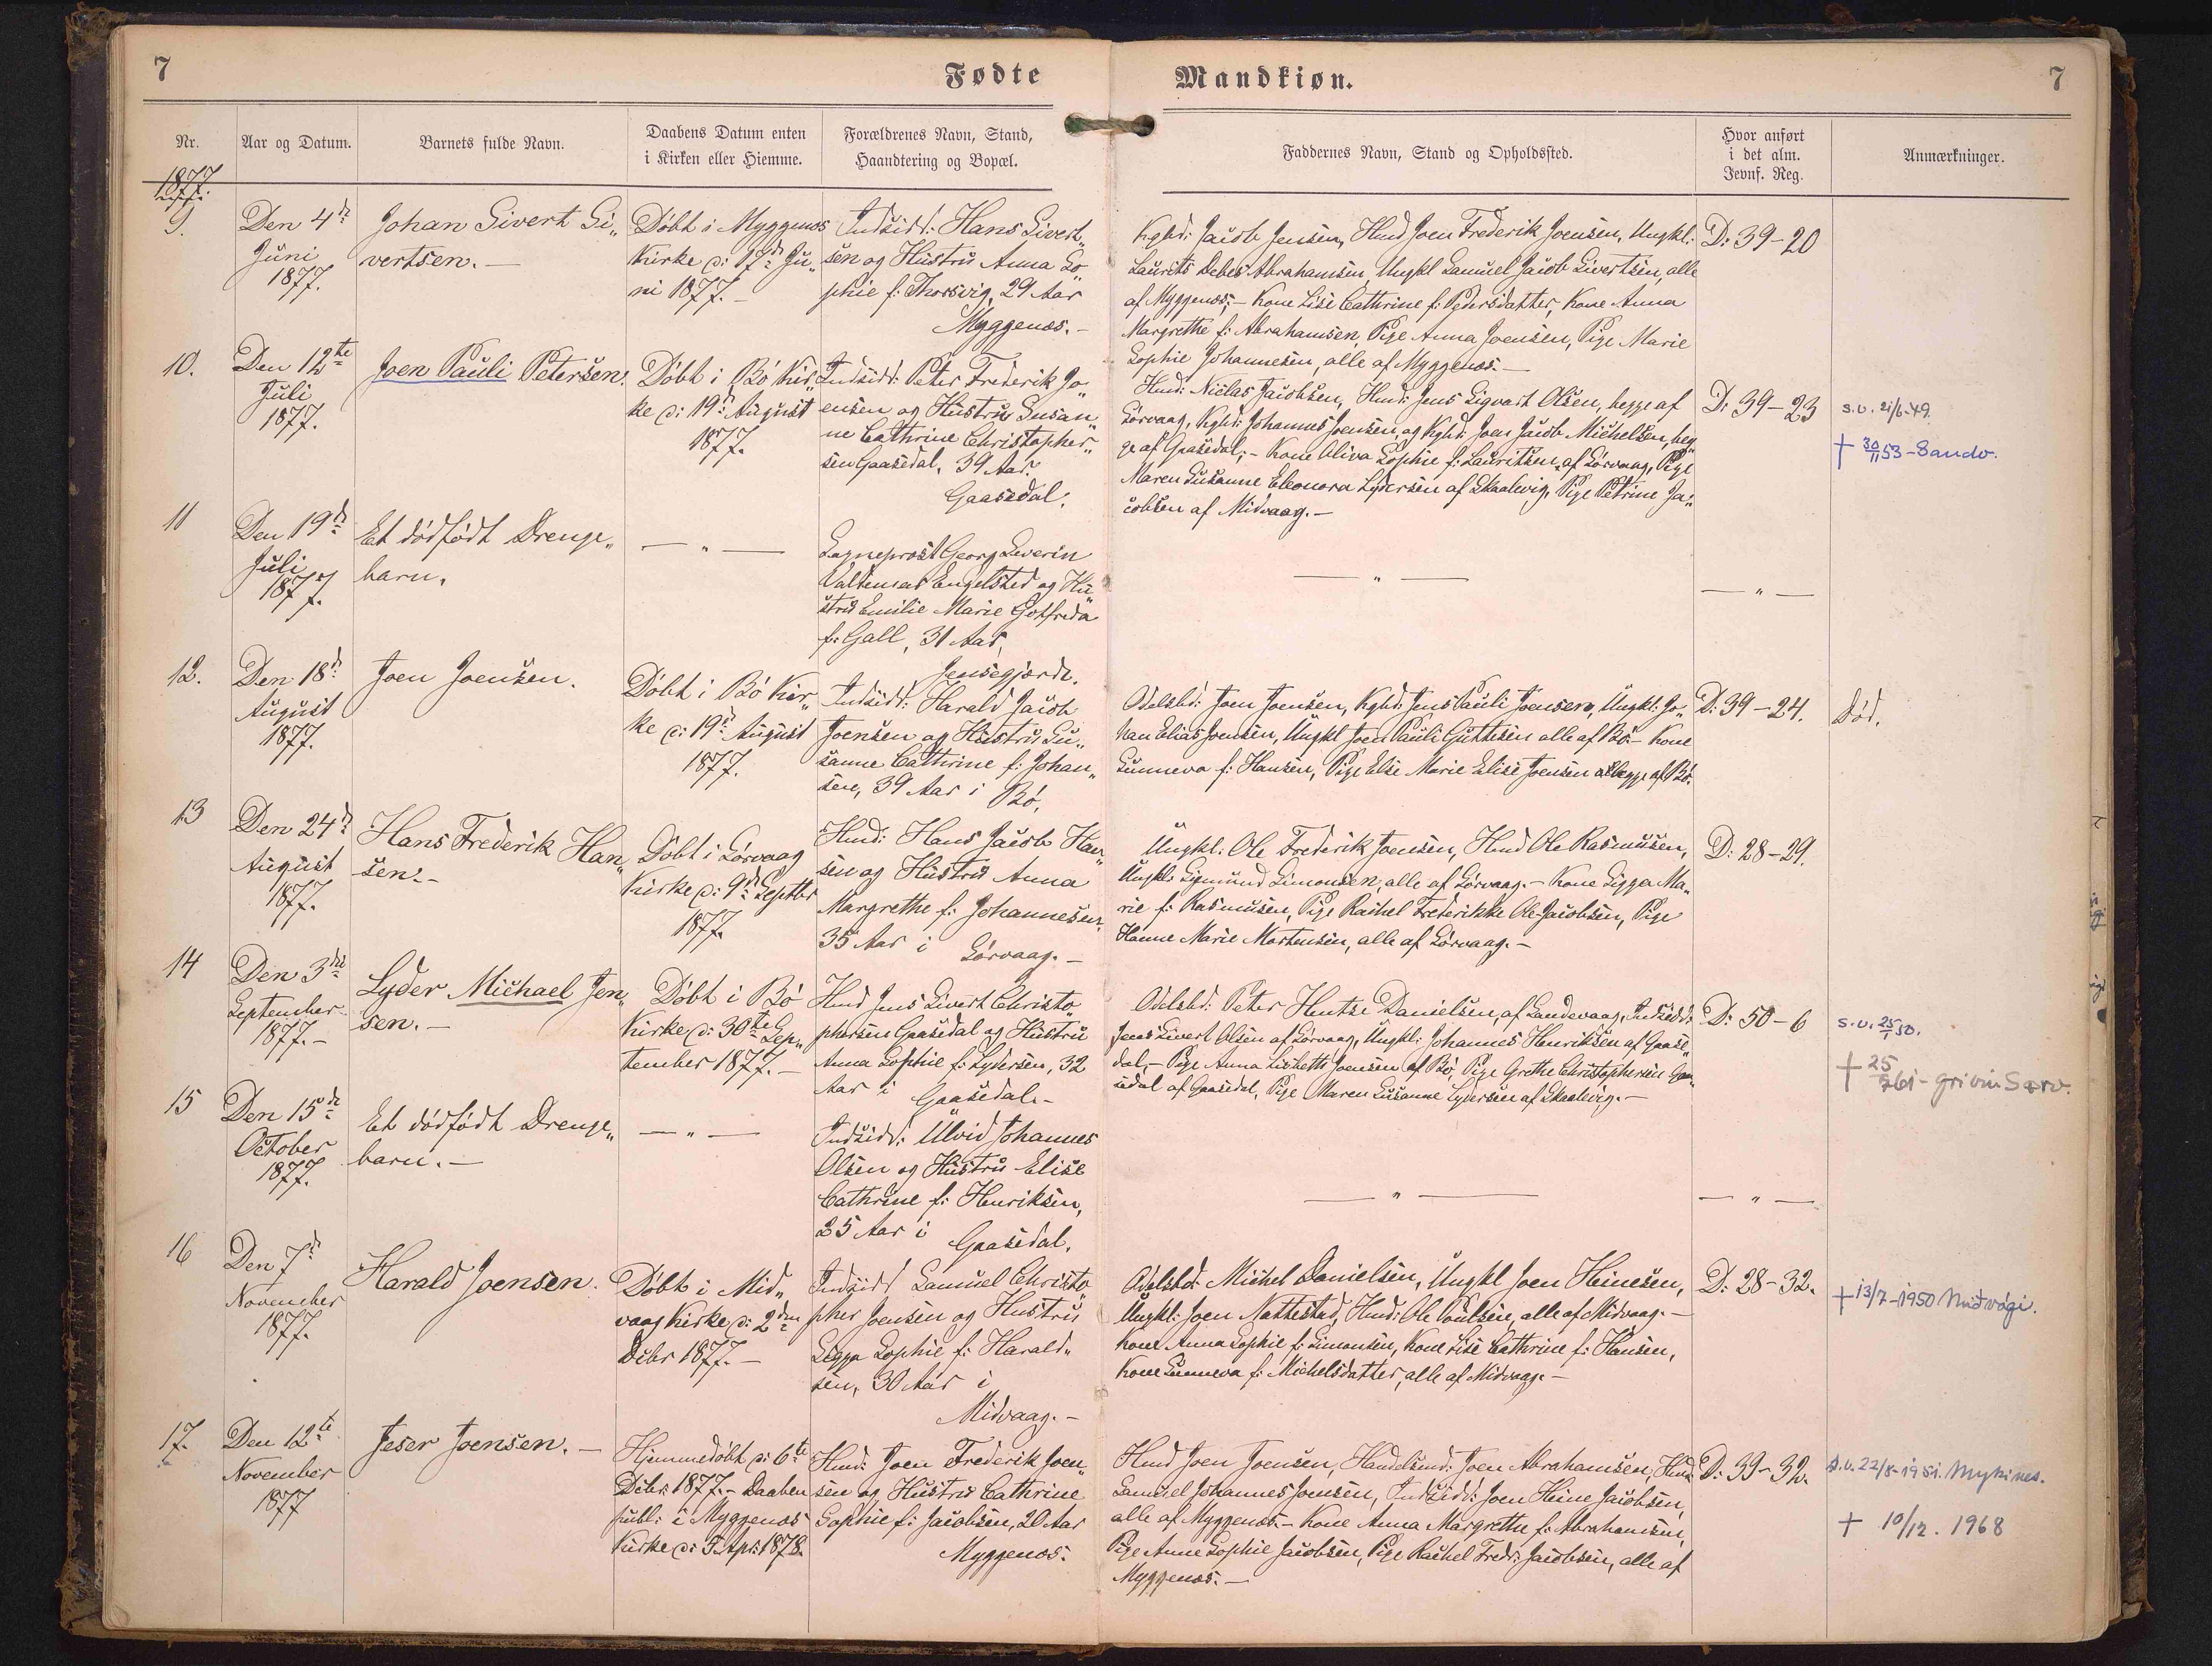 7
Fødte
Mandkiøn.
7
Nr.
Aar og Datum.
Barnets fulde Navn.
Daabens Datum enten
i Kirken eller Hiemme.
Forældrenes Navn, Stand,
Haandtering og Bopæl.
Faddernes Navn, Stand og Opholdssted.
Hvor anført
i det alm.
Jevnf. Reg.
Anmærkninger.
1877.
9.
Den 4de
Juni
1877.
Johan Sivert Si„
vertsen.—
Döbt i Myggenæs
Kirke d: 17de Ju„
ni 1877.—
Indsidd: Hans Sivert„
sen og Hustru Anna So„
phie f: Thorsvig, 29 Aar
Myggenæs.—
Kgbd: Jacob Jensen, Hmd Joen Frederik Joensen, Ungkl:
Laurits Debes Abrahamsen, Ungkl Samuel Jacob Sivertsen, alle
af Myggenæs;— Kone Lise Cathrine f: Pedersdatter, Kone Anna
Margrethe f: Abrahamsen, Pige Anna Joensen, Pige Marie
Sophie Johannesen, alle af Myggenæs.—
D: 39-20
10.
Den 12te
Juli
1877.
Joen Pauli Petersen.
Döbt i Bö Kir„
ke d: 19de August
1877.
Indsidd: Peter Frederik Jo„
ensen og Hustru Susan„
ne Cathrine Christopher„
sen Gaasedal, 39 Aar.
Gaasedal.
Hmd: Niclas Jacobsen, Hmd: Jens Sigvart Olsen, begge af
Sörvaag, Kgbd: Johannes Joensen, og Kgbd: Joen Jacob Michelsen, beg„
ge af Gaasedal;— Kone Oliva Sophie f: Lauritsen, af Sörvaag, Pige
Maren Susanne Eleonora Lydersen af Skaalevig, Pige Petrine Ja„
cobsen af Midvaag.—
D: 39-23
s.v. 21/6-49.
† 30/11 53 - Sandv.
11
Den 19de
Juli
1877.
Et dödfödt Drenge„
barn.
— „ —
Sogneprost Georg Severin
Valdemar Engelsted og Hu„
stru Emilie Marie Gotfreda
f: Gall, 31 Aar,
Jensegjærde.
— „ —
— „ —
12.
Den 18de
August
1877.
Joen Joensen.
Döbt i Bö Kir„
ke d: 19de August
1877.
Indsidd: Harald Jacob
Joensen og Hustru Su„
sanne Cathrine f: Johan„
sen, 39 Aar i Bö.
Odelsbd: Joen Joensen, Kgbd: Jens Pauli Joensen, Ungkl: Jo„
han Elias Joensen, Ungkl Joen Pauli Guttesen alle af Bö.— Kone
Sunneva f: Hansen, Pige Else Marie Elise Joensen begge af Bö.
D: 39-24.
Död.
13
Den 24de
August
1877.
Hans Frederik Han„
sen.—
Döbt i Sörvaag
Kirke d: 9de Septbr
1877.
Hmd: Hans Jacob Han„
sen og Hustru Anna
Margrethe f: Johannesen,
35 Aar i Sörvaag.—
Ungkl: Ole Frederik Joensen, Hmd Ole Rasmusen,
Ungkl: Sigmund Simonsen, alle af Sörvaag.— Kone Sigga Ma„
rie f: Rasmusen, Pige Rachel Frederikke Ole-Jacobsen, Pige
Hanne Marie Mortensen, alle af Sörvaag.—
D: 28-29.
14
Den 3die
September
1877.—
Lyder Michael Jen„
sen.—
Döbt i Bö
Kirke d: 30te Sep„
tember 1877.—
Hmd Jens Sivert Christo„
phersen Gaasedal og Hustru
Anna Sophie f: Lydersen, 32
Aar i Gaasedal.—
Odelsbd: Peter Hentse Danielsen, af Sandevaag, Indsidd:
Jens Sivert Olsen af Sörvaag, Ungkl: Johannes Henriksen af Gaase„
dal,— Pige Anna Lisbeth Joensen af Bö, Pige Grethe Christophersen Gaa„
sedal af Gaasedal, Pige Maren Susanne Lydersen af Skaalevig.—
D: 50-6
s.v. 25/1 50.
15
Den 15de
October
1877.
Et dödfödt Drenge„
barn.—
— „ —
Indsidd: Ulvid Johannes
Olsen og Hustru Elise
Cathrine f: Henriksen,
25 Aar i Gaasedal.
— „ —
— „ —
16
Den 7de
November
1877.
Harald Joensen.
Döbt i Mid„
vaag Kirke d: 2den
Decbr 1877.—
Indsidd Samuel Christo„
pher Joensen og Hustru
Sigga Sophie f: Harald„
sen, 30 Aar i
Midvaag.—
Odelsbd: Michel Danielsen, Ungkl Joen Heinesen,
Ungkl: Joen Nattestad, Hmd: Ole Poulsen, alle af Midvaag.—
Kone Anna Sophie f: Simonsen, Kone Lise Cathrine f: Hansen,
Kone Sunneva f: Michelsdatter, alle af Midvaag.—
D: 28-32.
† 13/7-1950 Miðvági.
17.
Den 12te
November
1877
Jeser Joensen.—
Hjemmedöbt d: 6te
Decbr 1877.— Daaben
publ: i Myggenæs
Kirke d: 5. Apr: 1878.
Hmd: Joen Frederik Joen„
sen og Hustru Cathrine
Sophie f: Jacobsen, 20 Aar
Myggenæs.
Hmd Joen Joensen, Handelsmd: Joen Abrahamsen, Hmd
Samuel Johannes Joensen, Indsidd: Joen Heine Jacobsen,
alle af Myggenæs.— Kone Anna Margrethe f: Abrahamsen,
Pige Anne Sophie Jacobsen, Pige Rachel Fredr: Jacobsen, alle af
Myggenæs.—
D: 39-32.
s.v. 22/8-1951. Mykines.
† 10/12. 1968